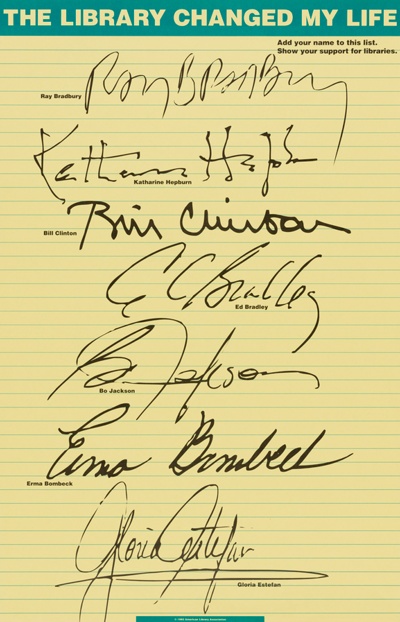 THE LIBRARY CHANGED MY LIFE
Add your name to this list.
Show your support for libraries.
Ray Bradbury
Ray Bradbury
Katharine Hepburn
Katharine Hepburn
Bill Clinton
Bill Clinton
Ed Bradley
Ed Bradley
Bo Jackson
Bo Jackson
Erma Bombeck
Erma Bombeck
Gloria Estefan
Gloria Estefan